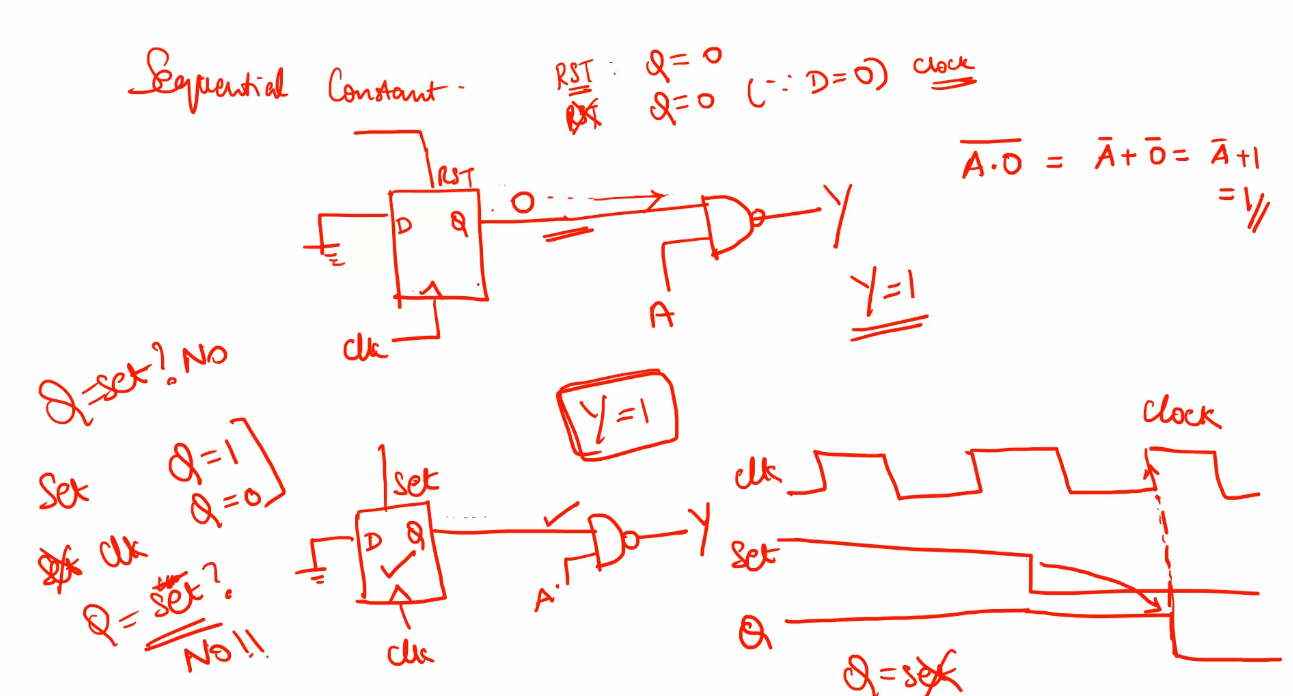 Sequential Constant.
RST : Q = 0
RST Q = 0 (∵ D = 0) clock
A̅·̅0̅ = A̅ + 0̅ = A̅ + 1
= 1 //
RST
0
D Q
Y
A
clk
Y = 1
Q = set? NO
Y = 1
clock
Set
Q = 1
Q = 0
set clk
Q = set?
NO!!
set
D Q
Y
A
clk
clk
set
Q
Q = set